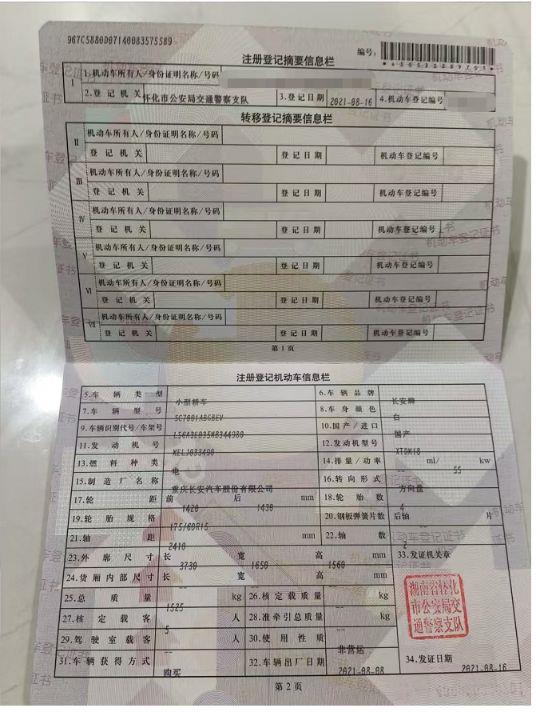 编号:
注册登记摘要信息栏
I 1.机动车所有人/身份证明名称/号码
2.登记机关 怀化市公安局交通警察支队 3.登记日期 2021-08-16 4.机动车登记编号
转移登记摘要信息栏
II 机动车所有人/身份证明名称/号码
登记机关 登记日期 机动车登记编号
III 机动车所有人/身份证明名称/号码
登记机关 登记日期 机动车登记编号
IV 机动车所有人/身份证明名称/号码
登记机关 登记日期 机动车登记编号
V 机动车所有人/身份证明名称/号码
登记机关 登记日期 机动车登记编号
VI 机动车所有人/身份证明名称/号码
登记机关 登记日期 机动车登记编号
VII 机动车所有人/身份证明名称/号码
登记机关 登记日期 机动车登记编号
第1页
注册登记机动车信息栏
5.车辆类型 小型轿车 6.车辆品牌 长安牌
7.车辆型号 8.车身颜色 白
9.车辆识别代号/车架号 10.国产/进口 国产
11.发动机号 12.发动机型号
13.燃料种类 电 14.排量/功率 -- ml/ 55 kw
15.制造厂名称 重庆长安汽车股份有限公司 16.转向形式 方向盘
17.轮距 前 1420 后 1430 mm 18.轮胎数 4
19.轮胎规格 175/60R15 20.钢板弹簧片数 后轴 片
21.轴距 2410 mm 22.轴数 2
23.外廓尺寸 长 3730 宽 1650 高 1560 mm 33.发证机关章
24.货厢内部尺寸 长 宽 高 mm
25.总质量 1525 kg 26.核定载质量 -- kg
27.核定载客 5 人 28.准牵引总质量 -- kg
29.驾驶室载客 -- 人 30.使用性质 非营运
31.车辆获得方式 购买 32.车辆出厂日期 2021-08-08 34.发证日期 2021-08-16
湖南省怀化
市公安局交
通警察支队
第2页